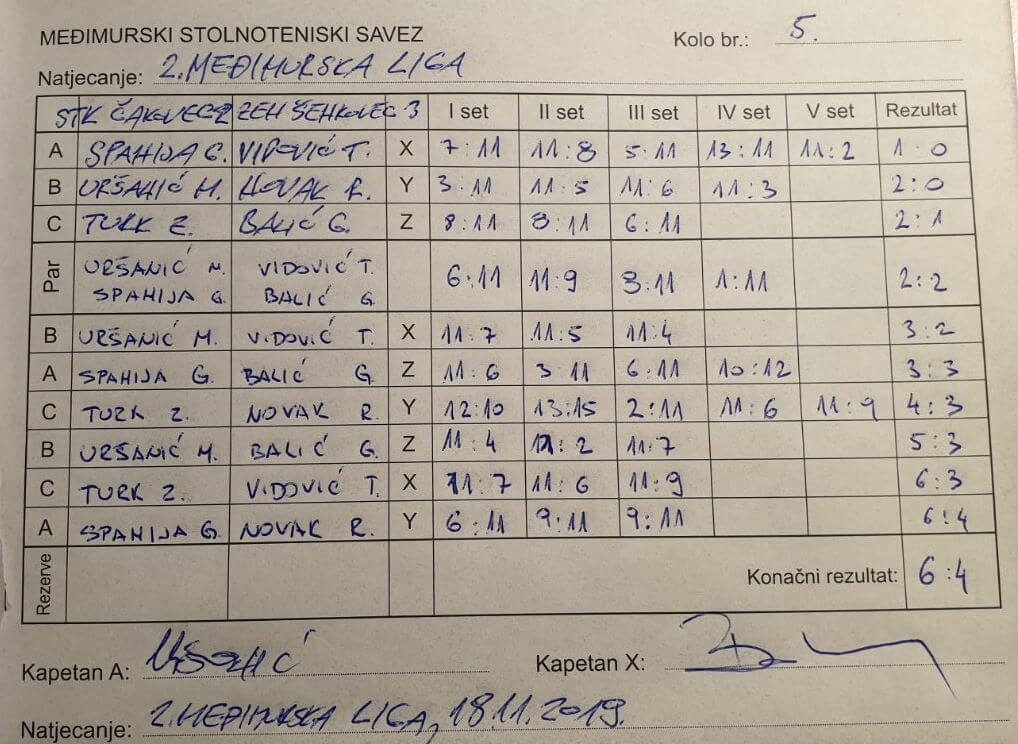 MEĐIMURSKI STOLNOTENISKI SAVEZ Kolo br.: 5.
Natjecanje: 2. MEĐIMURSKA LIGA
STK ČAKOVEC 2 ZEH ŠENKOVEC 3 I set II set III set IV set V set Rezultat
A SPAHIJA G. VIDOVIĆ T. X 7:11 11:8 5:11 13:11 11:2 1:0
B URŠANIĆ M. NOVAK R. Y 3:11 11:5 11:6 11:3 2:0
C TURK Z. BALIĆ G. Z 8:11 8:11 6:11 2:1
Par URŠANIĆ M. VIDOVIĆ T. 6:11 11:9 3:11 1:11 2:2
SPAHIJA G. BALIĆ G.
B URŠANIĆ M. VIDOVIĆ T. X 11:7 11:5 11:4 3:2
A SPAHIJA G. BALIĆ G. Z 11:6 3:11 6:11 10:12 3:3
C TURK Z. NOVAK R. Y 12:10 13:15 2:11 11:6 11:9 4:3
B URŠANIĆ M. BALIĆ G. Z 11:4 11:2 11:7 5:3
C TURK Z. VIDOVIĆ T. X 11:7 11:6 11:9 6:3
A SPAHIJA G. NOVAK R. Y 6:11 9:11 9:11 6:4
Rezerve Konačni rezultat: 6:4
Kapetan A: Uršanić Kapetan X:
Natjecanje: 2. MEĐIMURSKA LIGA, 18.11.2019.